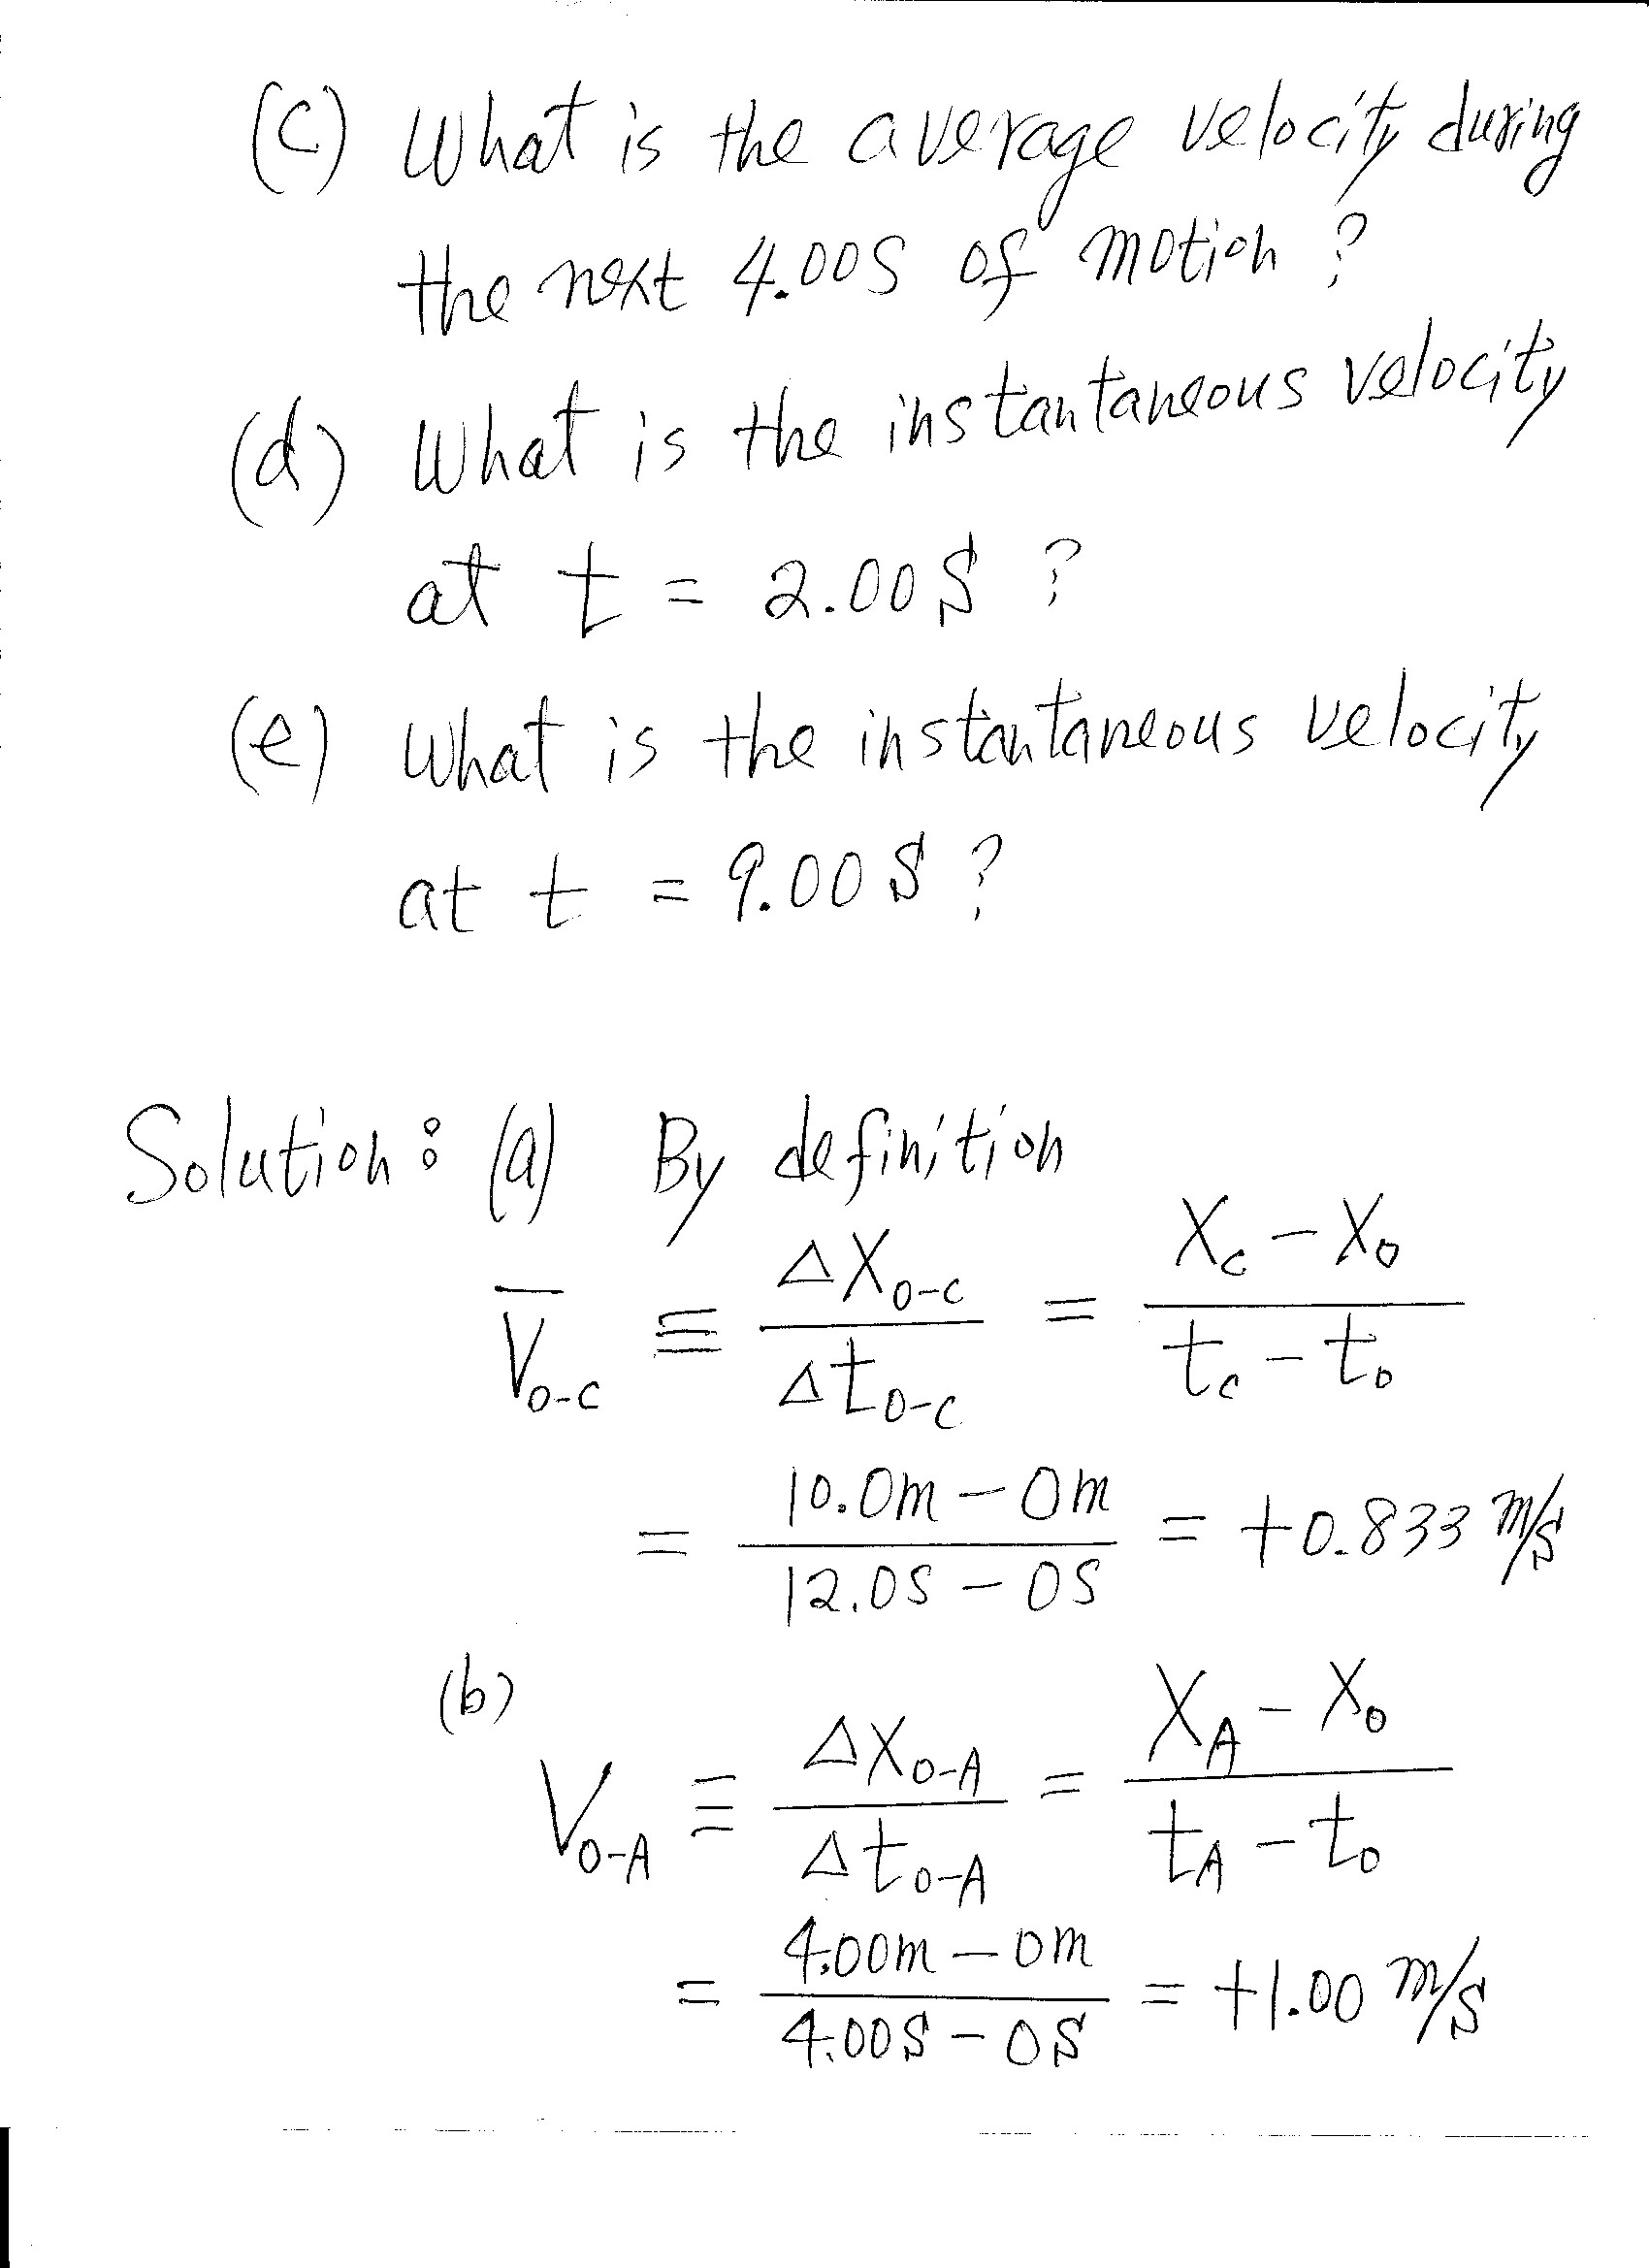 (c) What is the average velocity during
the next 4.00S of motion ?
(d) What is the instantaneous velocity
at t = 2.00S ?
(e) What is the instantaneous velocity
at t = 9.00S ?
Solution: (a) By definition
V̄₀₋c ≡ ΔX₀₋c / Δt₀₋c = (Xc − X₀) / (tc − t₀)
= (10.0m − 0m) / (12.0S − 0S) = +0.833 m/s
(b)
V₀₋A ≡ ΔX₀₋A / Δt₀₋A = (XA − X₀) / (tA − t₀)
= (4.00m − 0m) / (4.00S − 0S) = +1.00 m/s